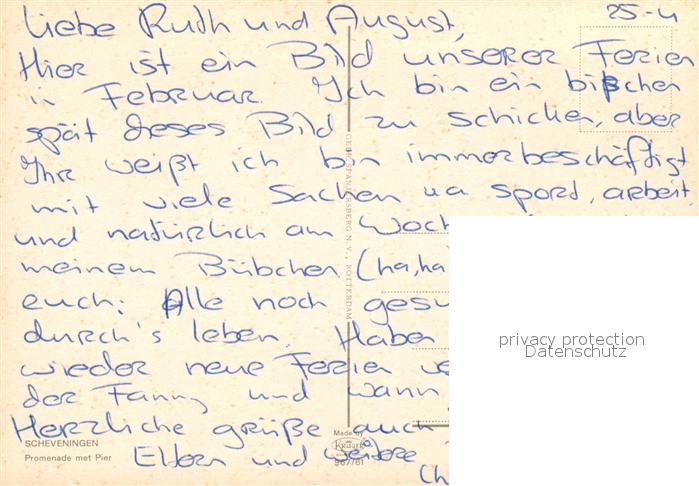 25-4
Liebe Ruth und August,
Hier ist ein Bild unserer Ferien
in Februar. Ich bin ein bißchen
spät dieses Bild zu schicken, aber
Ihr weißt ich bin immer beschäftigt
mit viele Sachen ua sport, arbeit,
und natürlich am Woch
meinem Bübchen (ha, ha
euch: Alle noch gesu
durch's leben. Haben
wieder neue Ferien ve
der Fanny und wann
Herzliche grüße auch
Eltern und weitere
(h
SCHEVENINGEN
Promenade met Pier
Made by
KRÜGER
967/61
privacy protection
Datenschutz